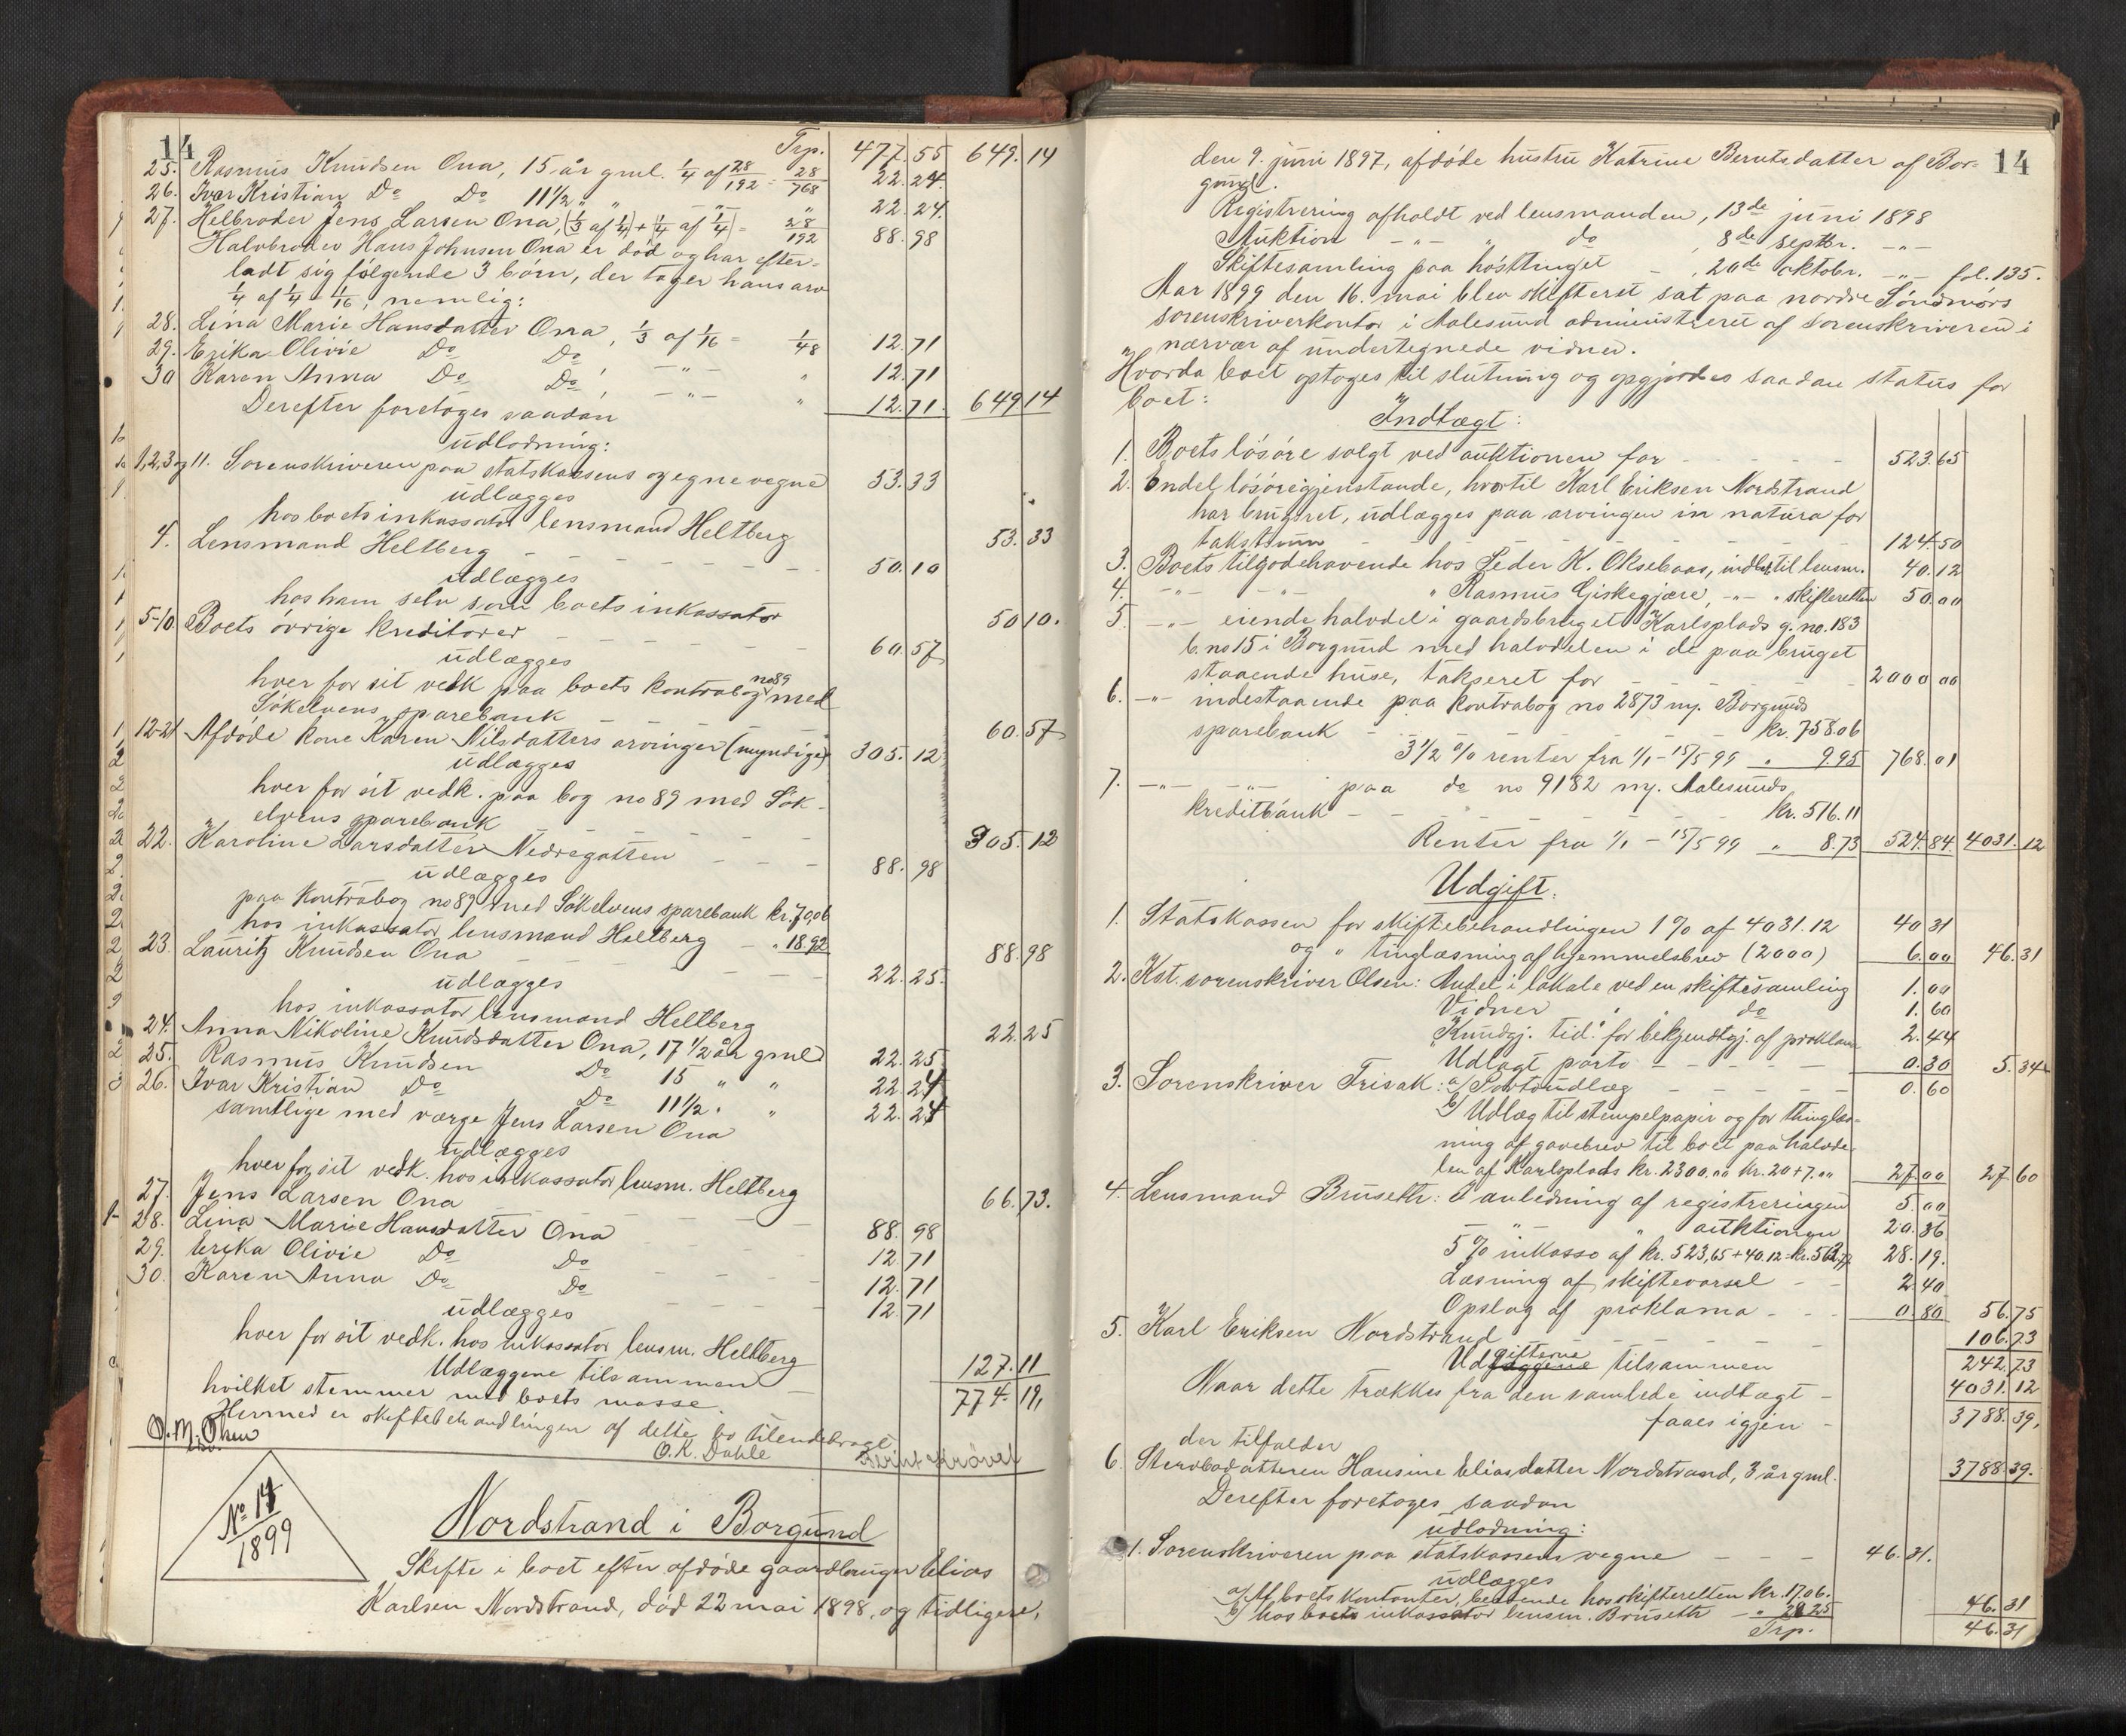 14
Trp. 477.55 649.14
25. Rasmus Knudsen Ona, 15 år gml. 1/4 af 28/192 = 28/768 22.24.
26. Ivar Kristian Do Do 11 1/2 " " -"- " 22.24.
27. Helbroder Jens Larsen Ona, (1/3 af 1/4) + (1/4 af 1/4) = 28/192 88.98
Halvbroder Hans Johnsen Ona er död og har efter-
ladt sig følgende 3 börn, der tager hans arv
1/4 af 1/4 = 1/16, nemlig:
28. Lina Marie Hansdatter Ona, 1/3 af 1/16 = 1/48 12.71
29. Erika Olivie Do Do, -"- " 12.71
30 Karen Anna Do Do, -"- " 12.71. 649 14
Derefter foretages saadan
udlodning:
1,2,3 og 11. Sorenskriveren paa statskassens og egne vegne 53.33
udlægges
hos boets inkassator lensmand Heltberg 53.33
4. Lensmand Heltberg 50.10
udlægges
hos ham selv som boets inkassator 50 10.
5-10 Boets övrige kreditorer 60.57
udlægges
hver for sit vedk paa boets kontrabog no 89 med
Sökelvens sparebank 60.57
12-21 Afdöde kone Karen Nilsdatters arvinger (myndige) 305.12
udlægges
hver for sit vedk. paa bog no 89 med Sök-
elvens sparebank 305.12
22. Karoline Larsdatter Nedregotten 88.98
udlægges
paa kontrabog no 89 med Sökelvens sparebank kr. 70,06
hos inkassator lensmand Heltberg - " 18.92 88.98
23. Lauritz Knudsen Ona 22.25.
udlægges
hos inkassator lensmand Heltberg 22.25
24. Anna Nikoline Knudsdatter Ona, 17 1/2 år gml 22.25
25. Rasmus Knudsen Do 15 " " 22.24
26. Ivar Kristian Do Do 11 1/2 " " 22.24
samtlige med værge Jens Larsen Ona
udlægges
hver for sit vedk. hos inkassator lensm. Heltberg 66.73.
27. Jens Larsen Ona 88.98
28. Lina Marie Hansdatter Ona 12.71
29. Erika Olivie Do Do 12.71
30. Karen Anna Do Do 12.71
udlægges
hver for sit vedk. hos inkassator lensm. Heltberg 127.11
Udlæggene tilsammen 774.19,
hvilket stemmer med boets masse.
Hermed er skiftebehandlingen af dette bo tilendebragt
O. M. Olsen
O. K. Dahle
No 14
1899
Nordstrand i Borgund
Skifte i boet efter afdöde gaardbruger Elias
Karlsen Nordstrand, död 22 mai 1898, og tidligere,
14
den 9. juni 1897, afdöde hustru Katrine Berntsdatter af Bor-
gund.
Registrering afholdt ved lensmanden, 13de juni 1898
Auktion -"- " do, 8de septbr. -"-
Skiftesamling paa hösttinget - , 20de oktobr. -"- fol. 135.
Aar 1899 den 16. mai blev skifteret sat paa nordre Söndmörs
sorenskriverkontor i Aalesund administreret af sorenskriveren i
nærvær af undertegnede vidner.
Hvorda boet optoges til slutning og opgjordes saadan status for
boet:
Indtægt:
1. Boets lösöre solgt ved auktionen for 523.65
2. Endel lösöregjenstande, hvortil Karl Eriksen Nordstrand
har brugsret, udlægges paa arvingen in natura for
takstsum 124.50
3. Boets tilgodehavende hos Peder K. Oksebaas, indbet. til lensm. 40.12
4. -"- -"- " Rasmus Giskegjære, -"- " skifteretten 50.00
5. -"- eiende halvdel i gaardsbruget Karlsplads g. no. 183
b. no 15 i Borgund med halvdelen i de paa bruget
staaende huse, takseret for 2000 00
6. -"- indestaaende paa kontrabog no 2873 ny. Borgunds
sparebank - kr. 758.06
3 1/2 % renter fra 1/1 - 15/5 99 " 9.95 768.01
7. -"- -"- paa do no 9182 ny. Aalesunds
kreditbank - kr. 516.11
Renter fra 1/1 - 15/5 99 " 8.73 524.84. 4031.12
Udgift:
1. Statskassen for skiftebehandlingen 1 % af 4031.12 40 31
og " tinglæsning af hjemmelsbrev (2000) 6.00 46.31
2. Kst. sorenskriver Olsen: Andel i lokale ved en skiftesamling 1.00
Vidner " " do 1.60
Kundgj. tid. for bekjendtgj. af proklam 2.44
Udlagt porto 0.30 5.34
3. Sorenskriver Frisak: a/ Portoudlæg 0.60
b/ Udlæg til stempelpapir og for thinglæs-
ning af gavebrev til boet paa halvde-
len af Karlsplads kr. 2300.00 kr. 20 + 7.00 27.00 27 60
4. Lensmand Bruseth: I anledning af registreringen 5.00
" " auktionen 20.36
5 % inkasso af kr. 523,65 + 40.12 = kr. 563,77 28.19.
Læsning af skiftevarsel 2.40
Opslag af proklama 0.80 56.75
5. Karl Eriksen Nordstrand 106.73
Udgifterne tilsammen 242.73
Naar dette trækkes fra den samlede indtægt - 4031.12
faaes igjen - 3788.39,
der tilfalder
6. Stervbodatteren Hansine Eliasdatter Nordstrand, 3 år gml. 3788.39.
Derefter foretages saadan
udlodning:
1. Sorenskriveren paa statskassens vegne 46.31.
udlægges
a/ Af boets kontanter, beroende hos skifteretten kr. 17.06.
b/ hos boets inkassator lensm. Bruseth - " 29.25 46.31
Trp. 46.31